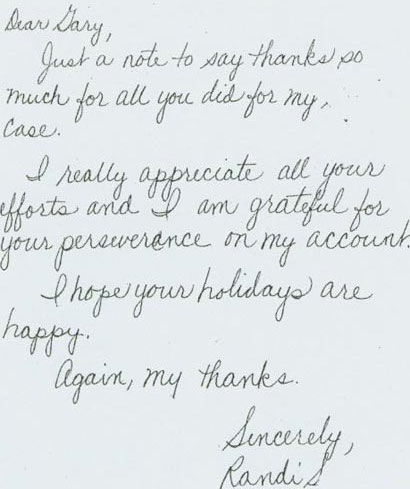 Dear Gary,
Just a note to say thanks so
much for all you did for my,
case.
I really appreciate all your
efforts and I am grateful for
your perseverance on my account.
I hope your holidays are
happy.
Again, my thanks.
Sincerely,
Randi S